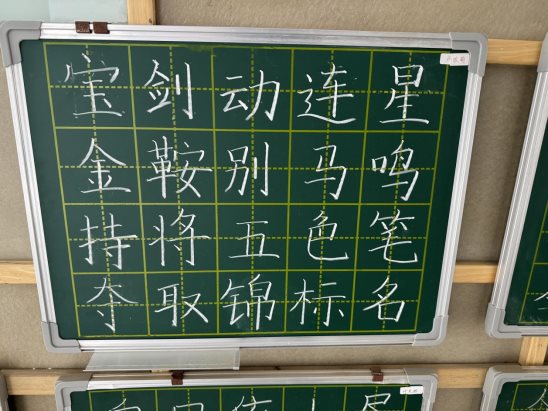 宝剑动连星
金鞍别马鸣
持将五色笔
夺取锦标名